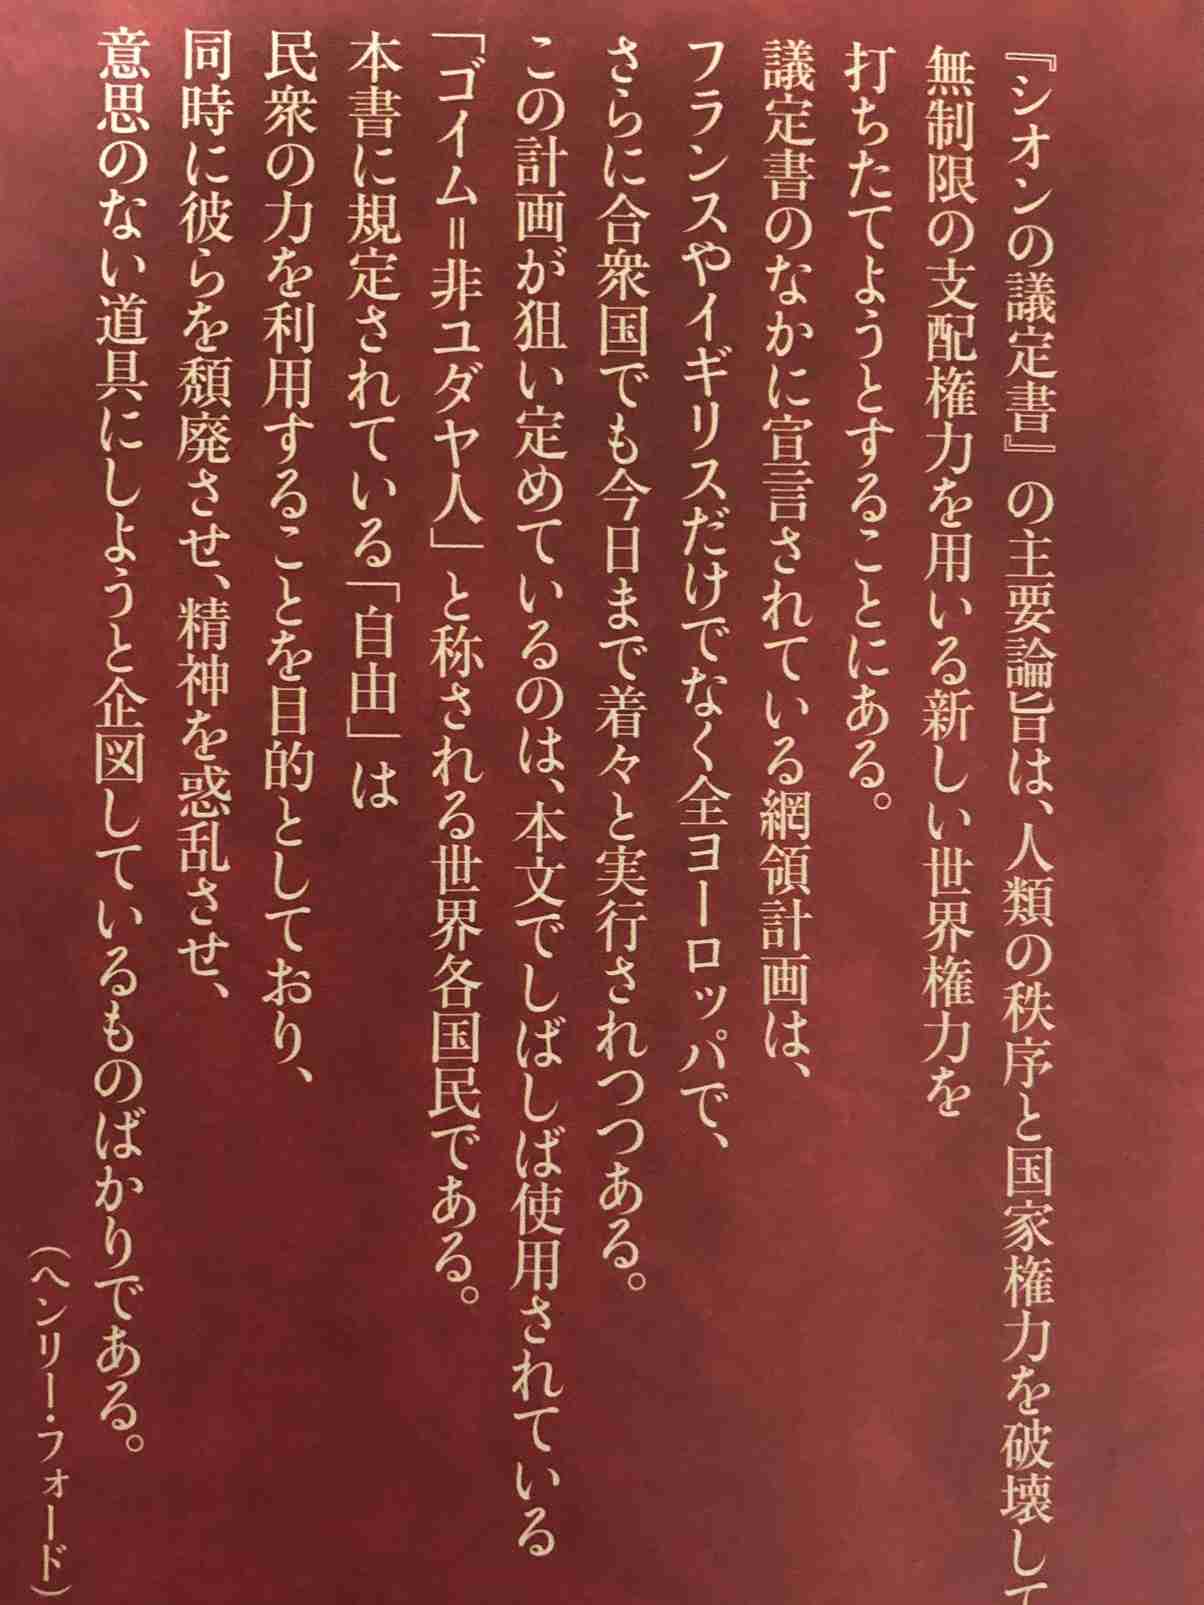 『シオンの議定書』の主要論旨は、人類の秩序と国家権力を破壊して
無制限の支配権力を用いる新しい世界権力を
打ちたてようとすることにある。
議定書のなかに宣言されている網領計画は、
フランスやイギリスだけでなく全ヨーロッパで、
さらに合衆国でも今日まで着々と実行されつつある。
この計画が狙い定めているのは、本文でしばしば使用されている
「ゴイム＝非ユダヤ人」と称される世界各国民である。
本書に規定されている「自由」は
民衆の力を利用することを目的としており、
同時に彼らを頽廃させ、精神を惑乱させ、
意思のない道具にしようと企図しているものばかりである。
（ヘンリー・フォード）